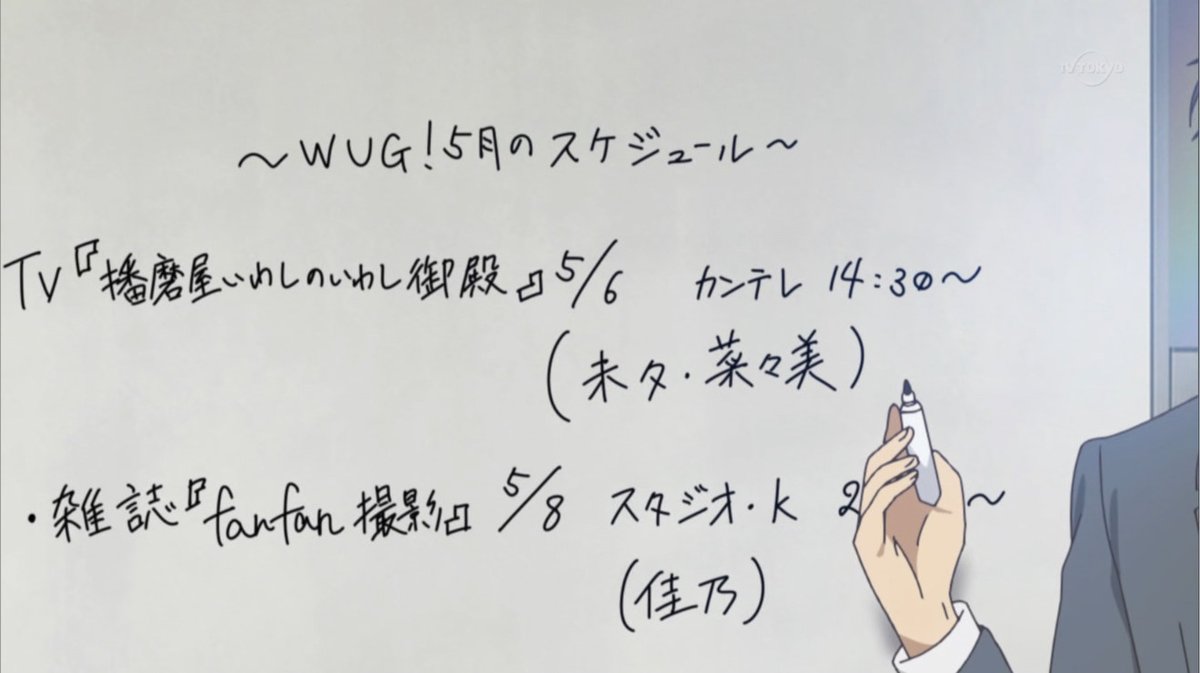 TV TOKYO
～WUG!5月のスケジュール～
TV『播磨屋いわしのいわし御殿』5/6 カンテレ 14:30～
(未夕・菜々美)
・雑誌『fanfan撮影』 5/8 スタジオ・k 2 ～
(佳乃)